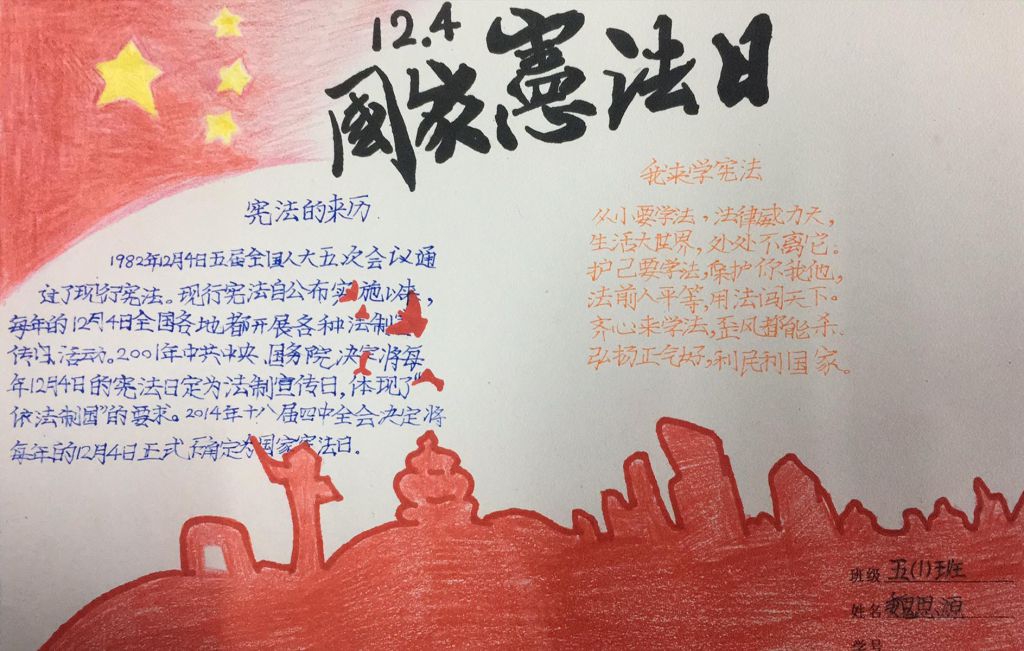 12.4
國家憲法日
宪法的来历
1982年12月4日五届全国人大五次会议通
过了现行宪法。现行宪法自公布实施以来，
每年的12月4日全国各地都开展各种法制宣
传 活动。2001年中共中央、国务院,决定将每
年12月4日的宪法日定为法制宣传日,体现了“
依法制国”的要求。2014年十八届四中全会决定将
每年的12月4日正式 确定为国家宪法日.
我来学宪法
从小要学法，法律威力大，
生活大世界,处处不离它。
护己要学法,保护你我他,
法前人平等,用法闯天下。
齐心来学法,歪风都能杀.
弘扬正气好,利民利国家。
班级 五(1)班
姓名 思源
学号